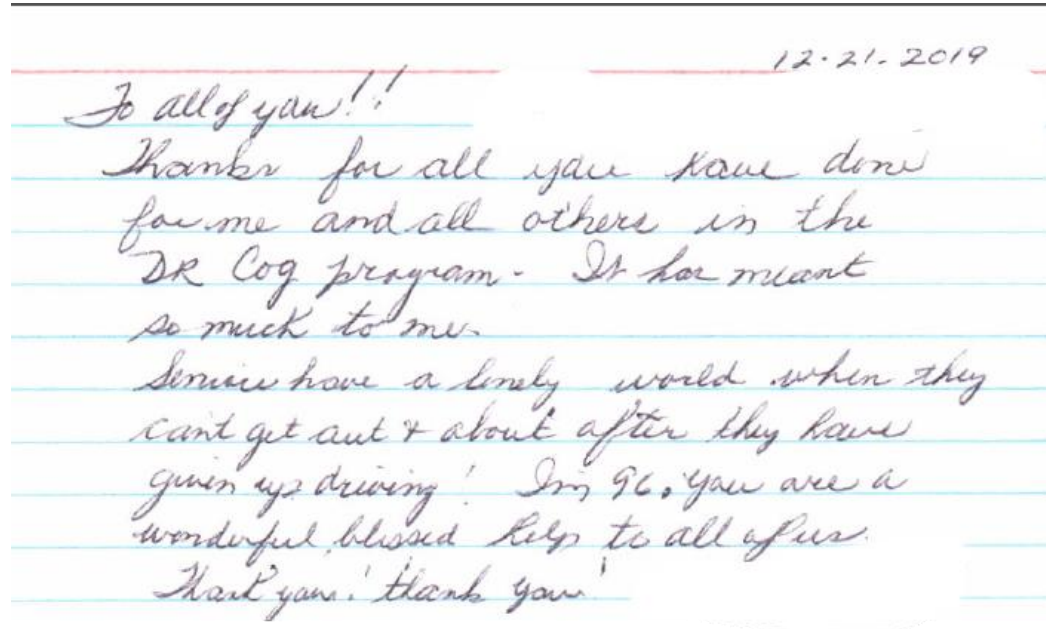 12-21-2019
To all of you!!
Thanks for all you have done
for me and all others in the
DR Cog program - It has meant
so much to me.
Seniors have a lonely world when they
cant get out & about after they have
given up driving! Im 96, you are a
wonderful, blessed help to all of us.
Thank you! thank you!